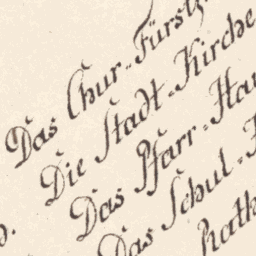 Das Chur-Fürstl
Die Stadt-Kirche
Das Pfarr-Hau
Das Schul-H
Rath